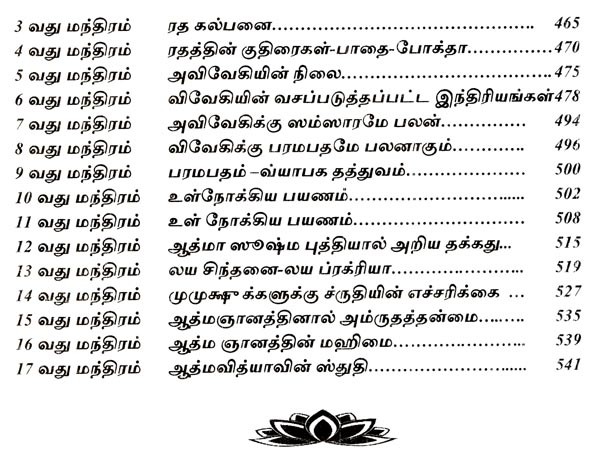 3 வது மந்திரம் ரத கல்பனை................................................ 465
4 வது மந்திரம் ரதத்தின் குதிரைகள்-பாதை-போக்தா...............470
5 வது மந்திரம் அவிவேகியின் நிலை.......................................475
6 வது மந்திரம் விவேகியின் வசப்படுத்தப்பட்ட இந்திரியங்கள்478
7 வது மந்திரம் அவிவேகிக்கு ஸம்ஸாரமே பலன்.................. 494
8 வது மந்திரம் விவேகிக்கு பரமபதமே பலனாகும்................. 496
9 வது மந்திரம் பரமபதம் –வ்யாபக தத்துவம்........................ 500
10 வது மந்திரம் உள்நோக்கிய பயணம்................................ 502
11 வது மந்திரம் உள் நோக்கிய பயணம்............................... 508
12 வது மந்திரம் ஆத்மா ஸூஷ்ம புத்தியால் அறிய தக்கது... 515
13 வது மந்திரம் லய சிந்தனை-லய ப்ரக்ரியா........................ 519
14 வது மந்திரம் முமுக்ஷுக்களுக்கு ச்ருதியின் எச்சரிக்கை ... 527
15 வது மந்திரம் ஆத்மஞானத்தினால் அம்ருதத்தன்மை......... 535
16 வது மந்திரம் ஆத்ம ஞானத்தின் மஹிமை........................ 539
17 வது மந்திரம் ஆத்மவித்யாவின் ஸ்துதி............................. 541